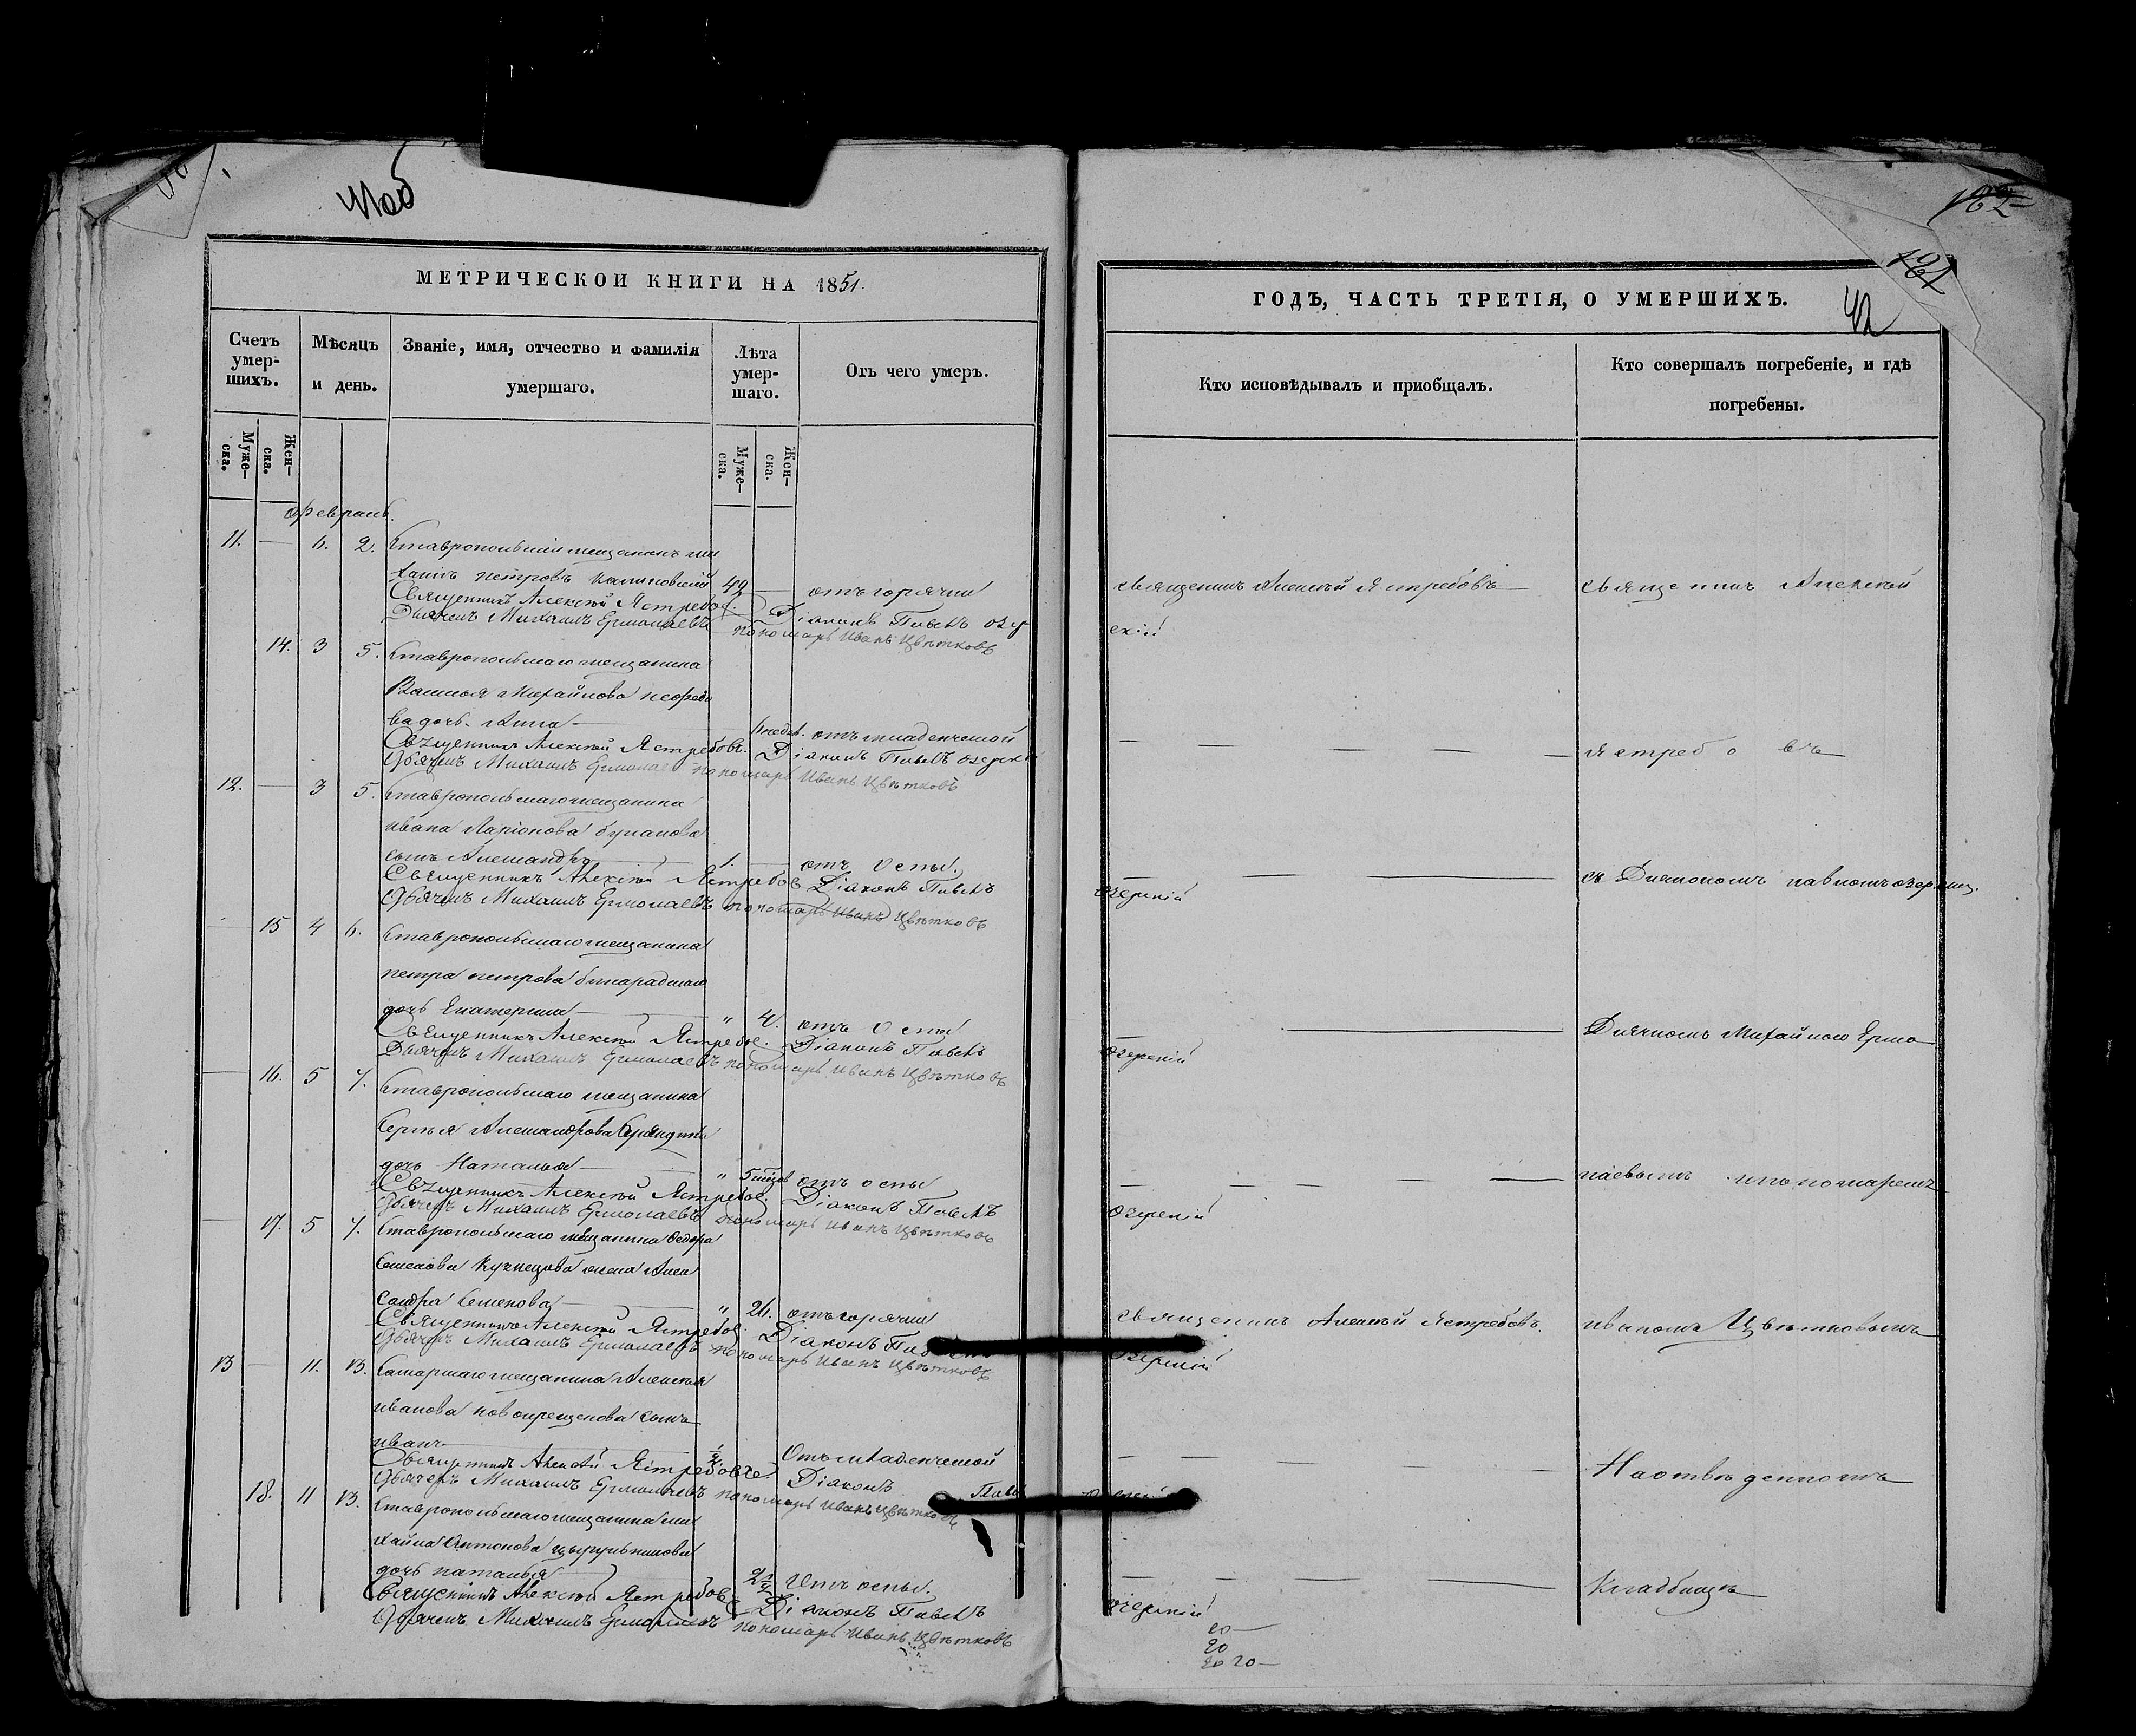 МЕТРИЧЕСКОЙ КНИГИ НА 1851.
Счетъ умер-шихъ.
Мѣсяцъ и день.
Званіе, имя, отчество и фамилія умершаго.
Лѣта умер-шаго.
Отъ чего умеръ.
Муже-ска.
Жен-ска.
Муже-ска.
Жен-ска.
Февраль.
11. — 2. Ставропольскій мещанинъ Ми
хаилъ Петровъ Калиновскій 49 — отъ горячки
Священникъ Алексѣй Ястребов. Діаконъ Павелъ Озер
Дьячекъ Михаилъ Ермолаевъ пономарь Иванъ Цвѣтковъ
14. 3 5. Ставропольскаго мещанина
Василья Михайлова
дочь Анна — отъ младенческой
Священникъ Алексѣй Ястребовъ. Діаконъ Павелъ Озерскі
Дьячекъ Михаилъ Ермолаев пономарь Иванъ Цвѣтковъ
12. — 3 5. Ставропольскаго мещанина
Ивана Ларіонова
сынъ Александръ — 1. — отъ оспы.
Священникъ Алексѣй Ястребов Діаконъ Павелъ
Дьячекъ Михаилъ Ермолаевъ пономарь Иванъ Цвѣтковъ
15 4 6. Ставропольскаго мещанина
Петра Петрова
дочь Екатерина — " 4. отъ оспы
Священникъ Алексѣй Ястребов. Діаконъ Павелъ
Дьячекъ Михаилъ Ермолаевъ пономарь Иванъ Цвѣтковъ
— 16. 5 7. Ставропольскаго мещанина
Сергѣя Александрова
дочь Наталья — " 5 отъ оспы
Священникъ Алексѣй Ястребов. Діаконъ Павелъ
Дьячекъ Михаилъ Ермолаевъ пономарь Иванъ Цвѣтковъ
— 17. 5 7. Ставропольскаго мещанина Федора
Семенова Кузнецова жена Алек
сандра Семенова — " 26. отъ горячки
Священникъ Алексѣй Ястребов. Діаконъ
Дьячекъ Михаилъ Ермолаевъ пономарь Иванъ Цвѣтковъ
13 — 11. 13. Самарскаго мещанина Алексѣя
Иванова Новокрещенова сынъ
Иванъ — Отъ младенческой
Священникъ Алексѣй Ястребовъ Діаконъ
Дьячекъ Михаилъ Ермолаевъ пономарь Иванъ Цвѣтковъ
18. 11 13. Ставропольскаго мещанина Ми
хайла Антонова Цырульникова
дочь Наталья — Отъ оспы.
Священникъ Алексѣй Ястребов Діаконъ Павелъ
Дьячекъ Михаилъ Ермолаевъ пономарь Иванъ Цвѣтковъ
182
181
ГОДЪ, ЧАСТЬ ТРЕТІЯ, О УМЕРШИХЪ.
Кто исповѣдывалъ и приобщалъ.
Кто совершалъ погребеніе, и гдѣ погребены.
священникъ Алексѣй Ястребовъ — священникъ Алексѣй
скій
Ястребовъ —
съ Діакономъ Павломъ Озерским.
Озерскій
Дьячкомъ Михайломъ Ермо
Озерскій
лаевымъ и пономаремъ
Озерскій
священникъ Алексѣй Ястребовъ. Иваномъ Цвѣтковымъ
Озерскій
На отведенномъ
Кладбищѣ
Озерскій
20 —
20
20 20 —